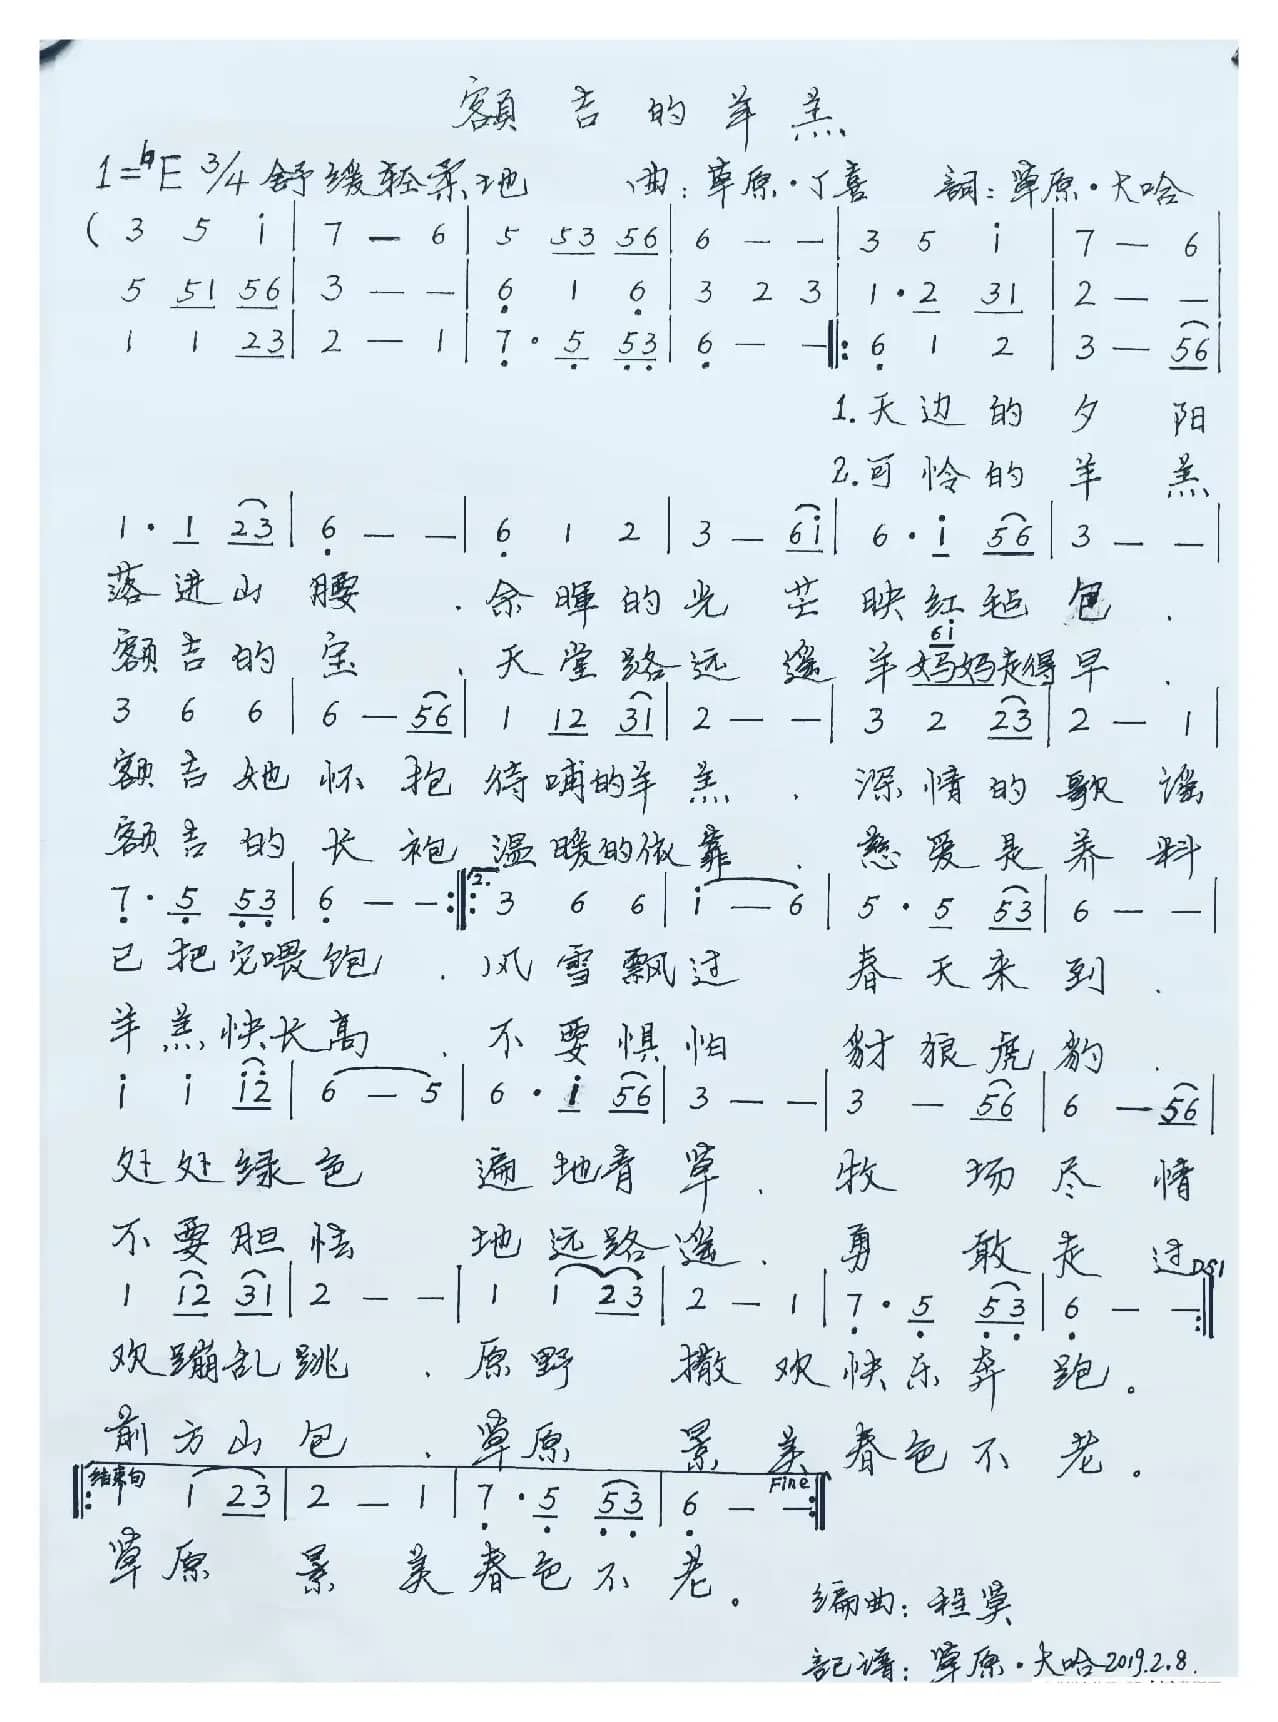 額吉的羊羔
1=♭E 3/4 舒缓轻柔地 曲：草原·丁喜 詞：草原·大哈
( 3 5 i | 7 — 6 | 5 53 56 | 6 — — | 3 5 i | 7 — 6 |
5 51 56 | 3 — — | 6 1 6 | 3 2 3 | 1·2 31 | 2 — — |
1 1 23 | 2 — 1 | 7·5 53 | 6 — — ‖: 6 1 2 | 3 — 56 |
1.天边的夕阳
2.可怜的羊羔
1·1 23 | 6 — — | 6 1 2 | 3 — 6i | 6·i 56 | 3 — — |
落进山腰．余暉的光芒映红毡包．
6i
额吉的宝．天堂路远遥羊妈妈走得早．
3 6 6 | 6 — 56 | 1 12 31 | 2 — — | 3 2 23 | 2 — 1 |
额吉她怀抱待哺的羊羔．深情的歌谣
额吉的长袍温暖的依靠．慈爱是养料
7·5 53 | 6 — — :‖: 2. 3 6 6 | i — 6 | 5·5 53 | 6 — — |
已把它喂饱．风雪飘过春天来到．
羊羔快长高．不要惧怕豺狼虎豹．
i i i2 | 6 — 5 | 6·i 56 | 3 — — | 3 — 56 | 6 — 56 |
处处绿色遍地青草．牧场尽情
不要胆怯地远路遥．勇敢走过
DS1
1 12 31 | 2 — — | 1 1 23 | 2 — 1 | 7·5 53 | 6 — — :‖
欢蹦乱跳．原野撒欢快乐奔跑。
前方山包．草原景美春色不老。
结束句 Fine
‖: 1 1 23 | 2 — 1 | 7·5 53 | 6 — — :‖
草原景美春色不老。
编曲：程昊
記谱：草原·大哈2019.2.8.